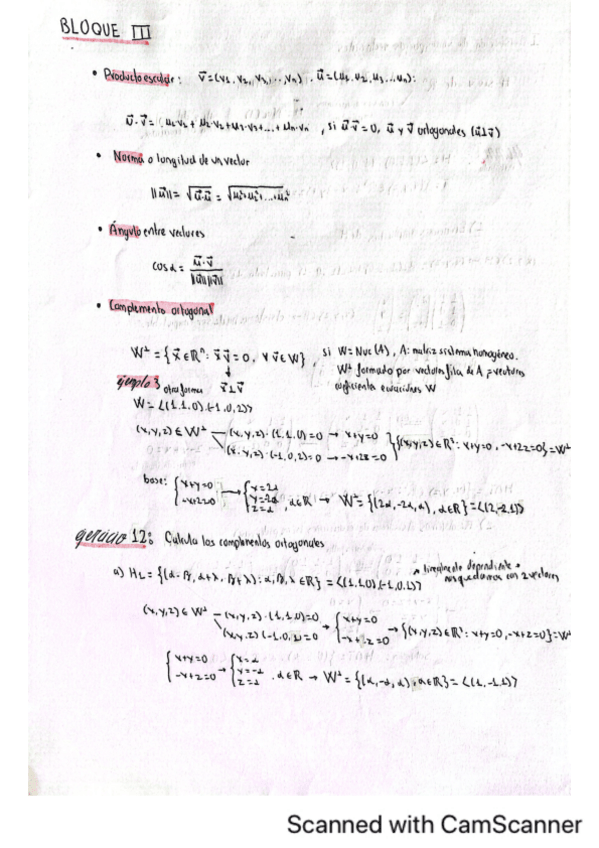 BLOQUE III
• Producto escalar: v⃗=(v₁,v₂,v₃,...,vₙ), u⃗=(u₁,u₂,u₃,...,uₙ):
u⃗·v⃗= u₁·v₁+u₂·v₂+u₃·v₃+...+uₙ·vₙ, si u⃗·v⃗=0, u⃗ y v⃗ ortogonales (u⃗⊥v⃗)
• Norma o longitud de un vector
||u⃗||=√(u⃗·u⃗) = √(u₁²+u₂²+...+uₙ²)
• Ángulo entre vectores
cos α = u⃗·v⃗ / ||u⃗|| ||v⃗||
• Complemento ortogonal
W⊥={x⃗∈ℝⁿ: x⃗·v⃗=0, ∀v⃗∈W}, si W=Nuc(A), A: matriz sistema homogéneo.
W⊥ formado por vectores fila de A = vectores
coeficientes ecuaciones W
ejemplo 3 otra forma x⃗⊥v⃗
W=<(1,1,0),(-1,0,2)>
(x,y,z)∈W⊥ (x,y,z)·(1,1,0)=0 → x+y=0
(x,y,z)·(-1,0,2)=0 → -x+2z=0 {(x,y,z)∈ℝ³: x+y=0, -x+2z=0}=W⊥
base: {x+y=0, -x+2z=0 → {x=2α, y=-2α, z=α, α∈ℝ → W⊥={(2α,-2α,α), α∈ℝ}=<(2,-2,1)>
ejercicio 12: Calcula los complementos ortogonales
a) H₁={(α-β, α+λ, β+λ): α,β,λ∈ℝ} = <(1,1,0),(-1,0,1)> linealmente dependiente
nos quedamos con 2 vectores
(x,y,z)∈W⊥ (x,y,z)·(1,1,0)=0
(x,y,z)·(-1,0,1)=0 → {x+y=0, -x+z=0 → {(x,y,z)∈ℝ³: x+y=0, -x+z=0}=W⊥
{x+y=0, -x+z=0 → {x=α, y=-α, z=α, α∈ℝ → W⊥={(α,-α,α), α∈ℝ}=<(1,-1,1)>
Scanned with CamScanner